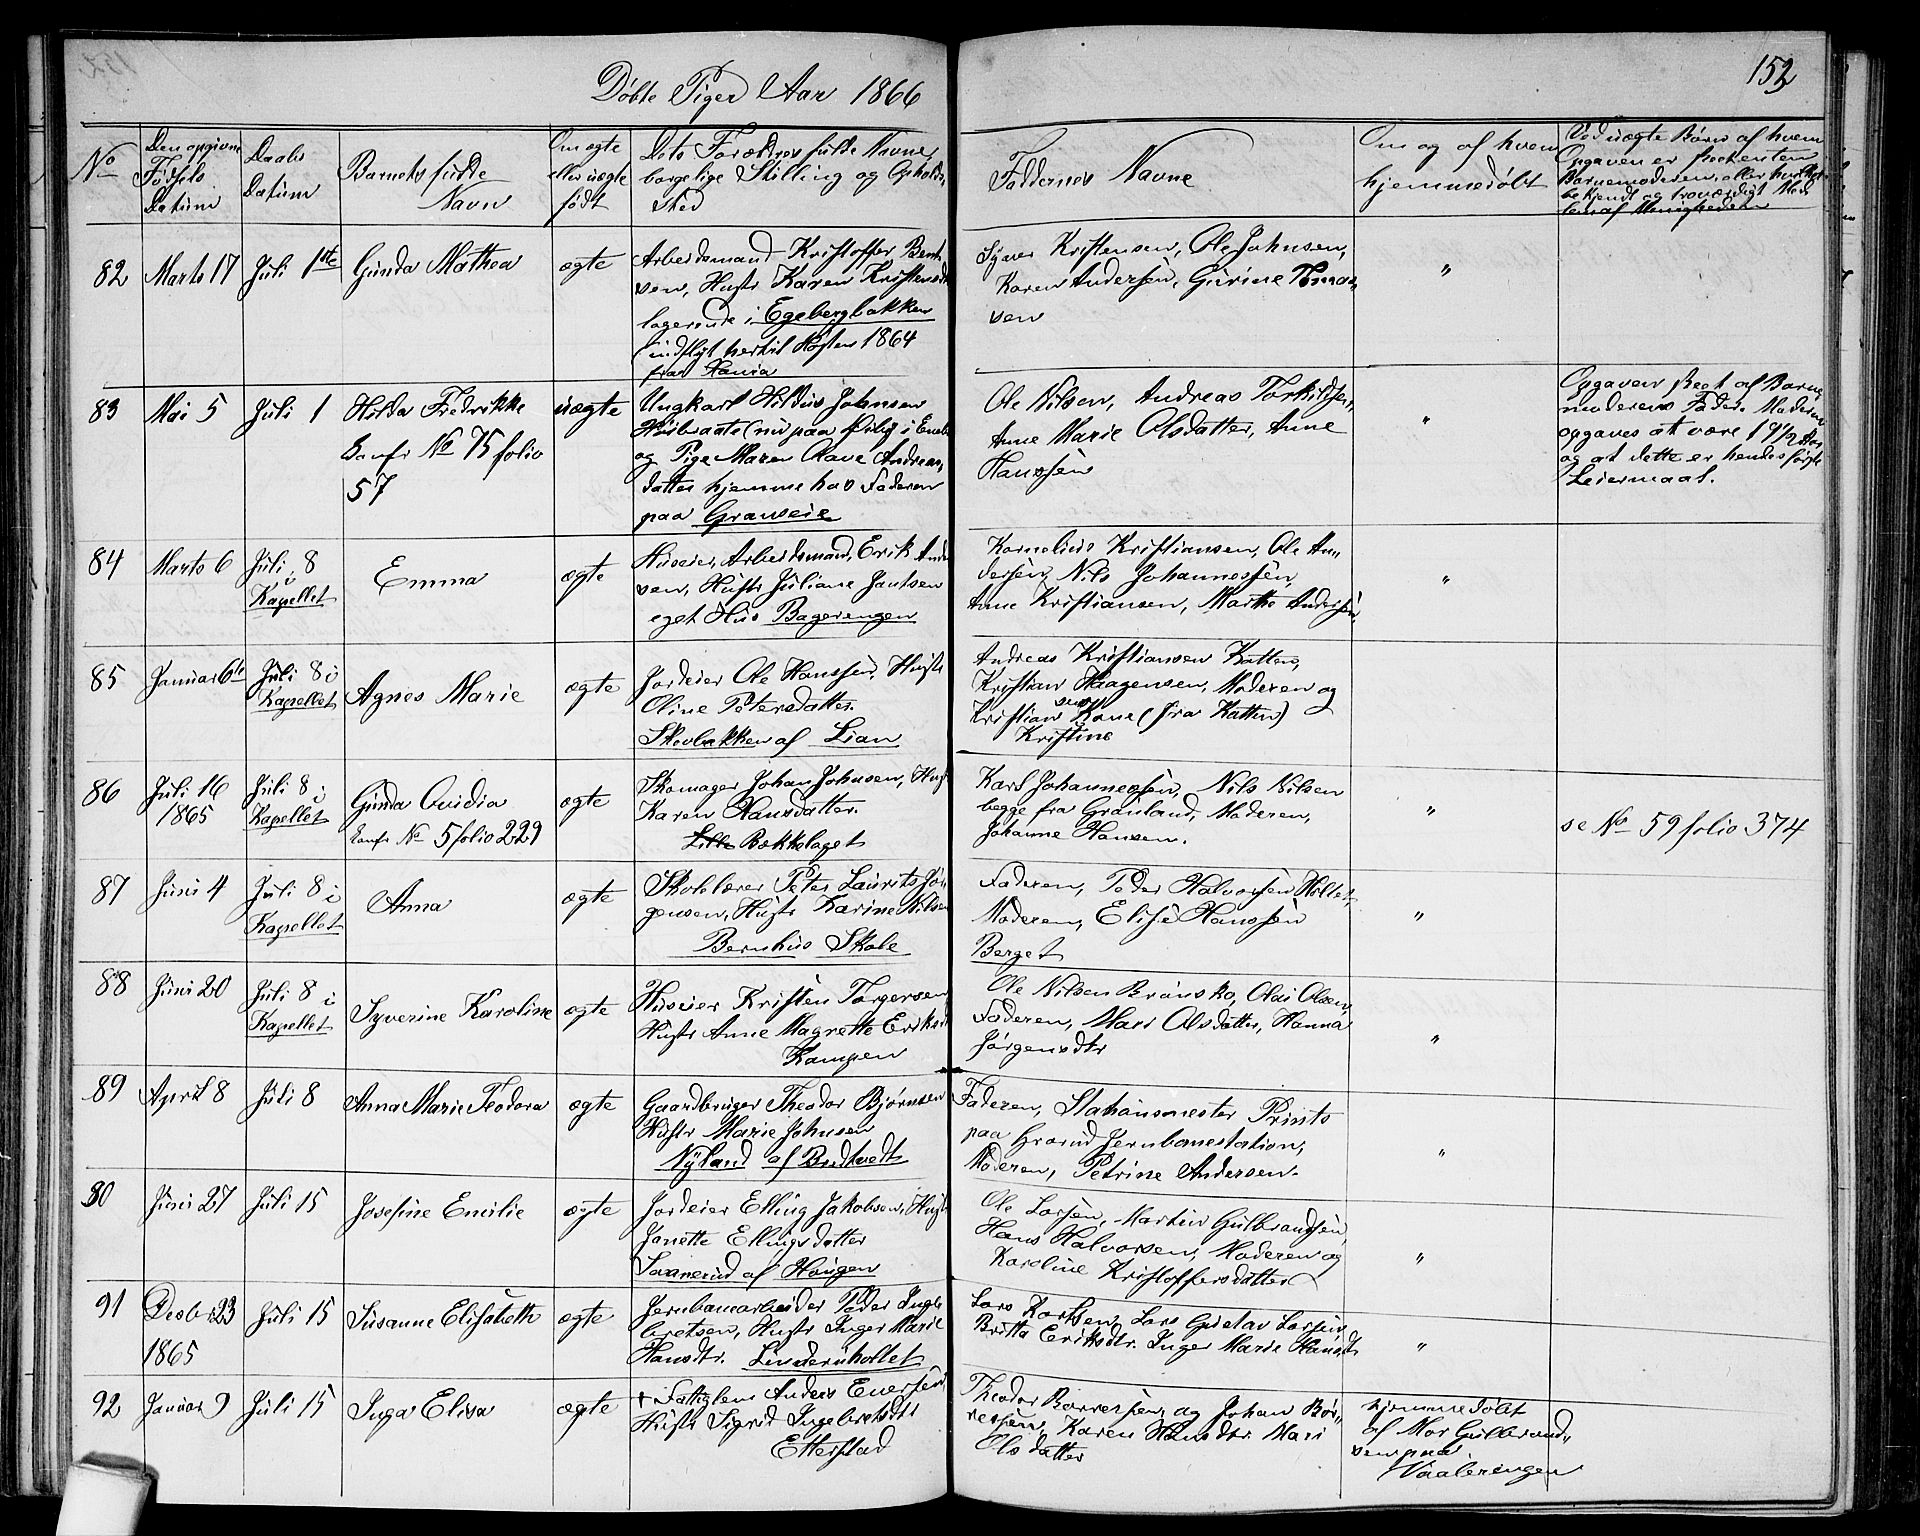 152
Døbte Piger Aar 1866
No
Den opgivne Fødsels Datum
Daabs Datum
Barnets fulde Navn
Om ægte eller uægte født
Dets Forældres fulde Navne, borgelige Stilling og Opholds Sted
Faddernes Navne
Om og af hvem hjemmedøbt
Ved uægte Børn af hvem Opgaven er skeet
82 Marts 17 Juli 1ste Gunda Mathea ægte
Arbeidsmand Kristoffer Bent
sen, Hustr Karen Kristensdtr
logerende i Egebergbakken
indflyt hertil Høsten 1864
fra
Syver Kristensen, Ole Johnsen,
Karen Andersen, Gurine Tomas
sen
"
83 Mai 5 Juli 1 Hilda Fredrikke
No 75 folio
57
uægte
Ungkarl Hildus Johnsen
og Pige Maren Olave Andreas
datter hjemme hos Faderen
paa Granseie
Ole Nilsen, Andreas Torkildsen,
Anne Marie Olsdatter, Anne
Hanssen
"
Opgaven skeet af Barne
moderens Fader. Moderen
opgaves at være 19 1/2 Aar
og at dette er hendes første
Leiermaal.
84 Marts 6 Juli 8 i
Kapellet
Emma ægte
Huseier, Arbeidsmand, Erik Ander
sen, Hustr Juliane Jantsen
eget Hus Bagerengen
Kornelius Kristiansen, Ole An-
dersen, Nils Johannessen,
Anne Kristiansen, Marthe Andersen.
"
85 Januar 6te Juli 8 i
Kapellet
Agnes Marie ægte
Jordeier Ole Hanssen, Hustr
Oline Petersdatter.
Skovbakken af Lian
Andreas Kristiansen Katten,
Kristian Haagensen, Moderen og
Kristiansens Kone (fra Katten)
Kristine
86 Juli 16
1865
Juli 8 i
Kapellet
Gunda Ovidia
No 5 folio 229
ægte
Skomager Johan Johnsen, Hust
Karen Hansdatter.
Lille Bækkelaget
Karl Johannessen, Nils Nilsen
begge fra Grønland, Moderen,
Johanne Hansen.
"
se No 59 folio 374
87 Juni 4 Juli 8 i
Kapellet
Anna ægte
Skolelærer Peter Laurits Jør
gensen, Hustr Karine Nilsen
Bernhus Skole
Faderen, Peder Halvorsen Holtet,
Moderen, Elise Hanssen
Berget
"
88 Juni 20 Juli 8 i
Kapellet
Syverine Karoline ægte
Huseier Kristen Torgersen,
Hustr Anne Magrette Eriksd
Kampen
Ole Nilsen Brånsko, Olai Olsen,
Faderen, Mari Olsdatter, Hanna
Jørgensdtr
"
89 April 8 Juli 8 Anna Marie Teodora ægte
Gaardbruger Theodor Bjørnsen
Hustr Marie Johnsen
Nyland af Bredtvedt
Faderen, Stationsmester Prints
paa Grorud Jernbanestation,
Moderen, Petrine Andersen.
"
90 Juni 27 Juli 15 Josefine Emilie ægte
Jordeier Elling Jakobsen, Hustr
Janette Ellingsdatter
Svanerud af Haugen
Ole Larsen, Martin Gulbrandsen,
Hans Halvorsen, Moderen og
Karoline Kristoffersdatter
"
91 Desber 23
1865
Juli 15 Susanne Elisabeth ægte
Jernbanearbeider Peder Inge
bretsen, Hustr Inger Marie
Hansdtr. Linderukollet
Lars Karlsen, Lars Gustav Larsen,
Britta Eriksdtr. Inger Marie Hansdt
"
92 Januar 9 Juli 15 Inga Elisa ægte
+ Fattiglem Anders Enersen
Hustr Sigrid Ingebretsdtr
Etterstad
Theodor Borresen og Johan Bør-
resen, Karen Hansdtr. Mari
Olsdatter
hjemmedøbt
af Mor Gulbrand-
sen paa
Vaalerengen